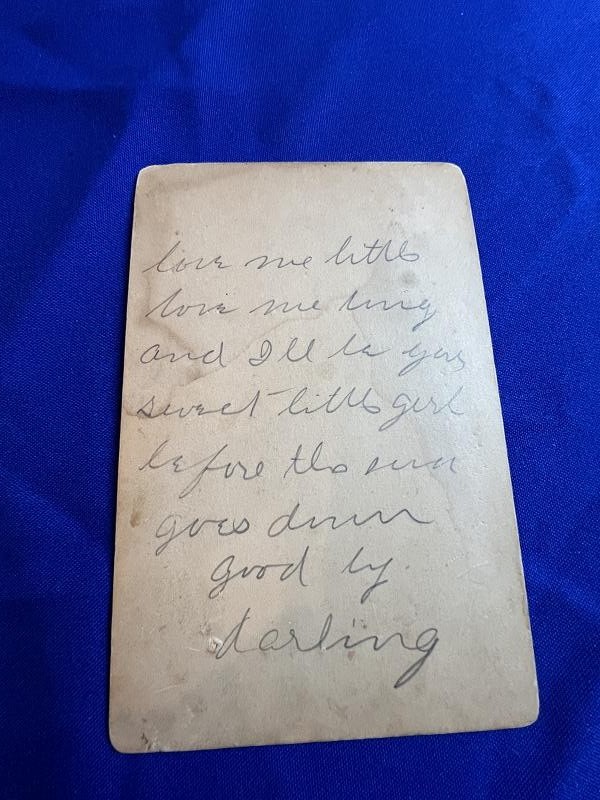 love me little
love me long
and I'll be your
sweet little girl
before the sun
goes down
good by
darling